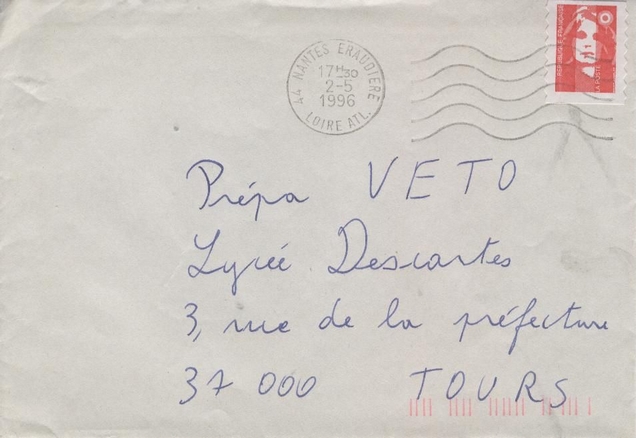 44 NANTES ERAUDIERE
17H30
2-5
1996
LOIRE ATL.
REPUBLIQUE FRANÇAISE
LA POSTE
Prépa VETO
Lycée Descartes
3, rue de la préfecture
37000 TOURS